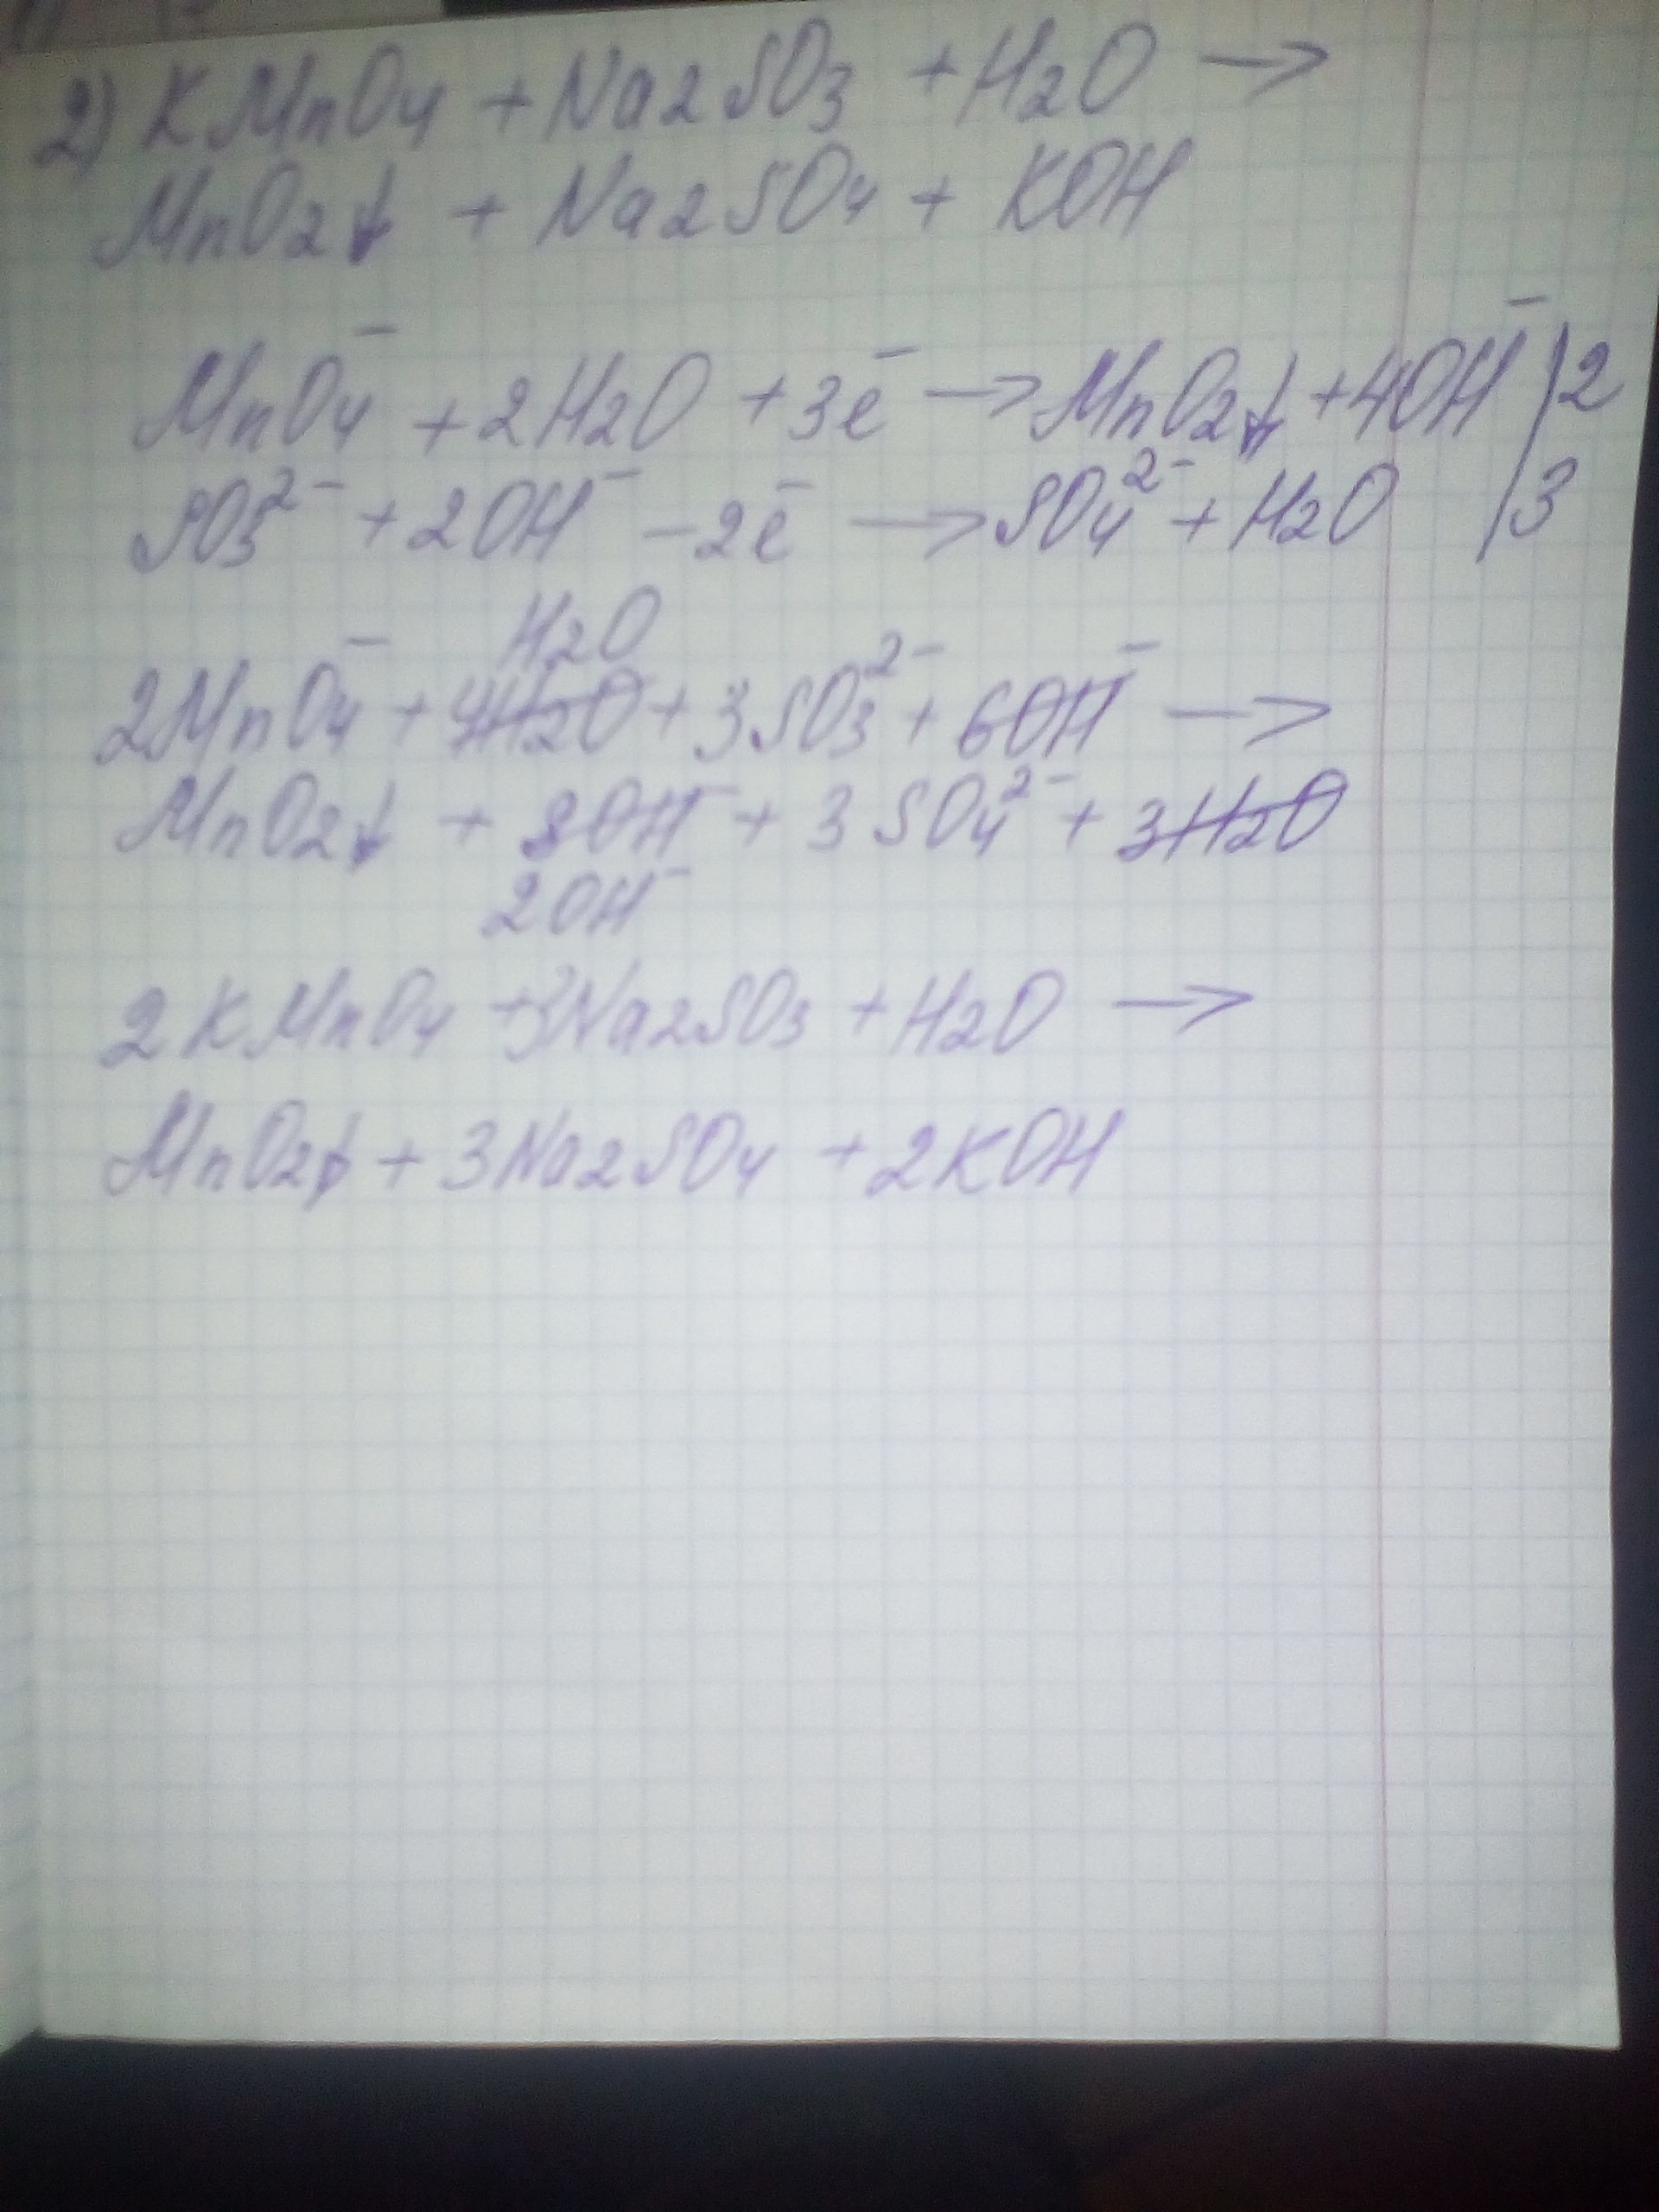 2) KMnO4 + Na2SO3 + H2O →
MnO2↓ + Na2SO4 + KOH
MnO4⁻ + 2H2O + 3e⁻ → MnO2↓ + 4OH⁻ | 2
SO3²⁻ + 2OH⁻ - 2e⁻ → SO4²⁻ + H2O | 3
H2O
2MnO4⁻ + 4H2O + 3SO3²⁻ + 6OH⁻ →
MnO2↓ + 8OH⁻ + 3SO4²⁻ + 3H2O
2OH⁻
2KMnO4 + 3Na2SO3 + H2O →
MnO2↓ + 3Na2SO4 + 2KOH